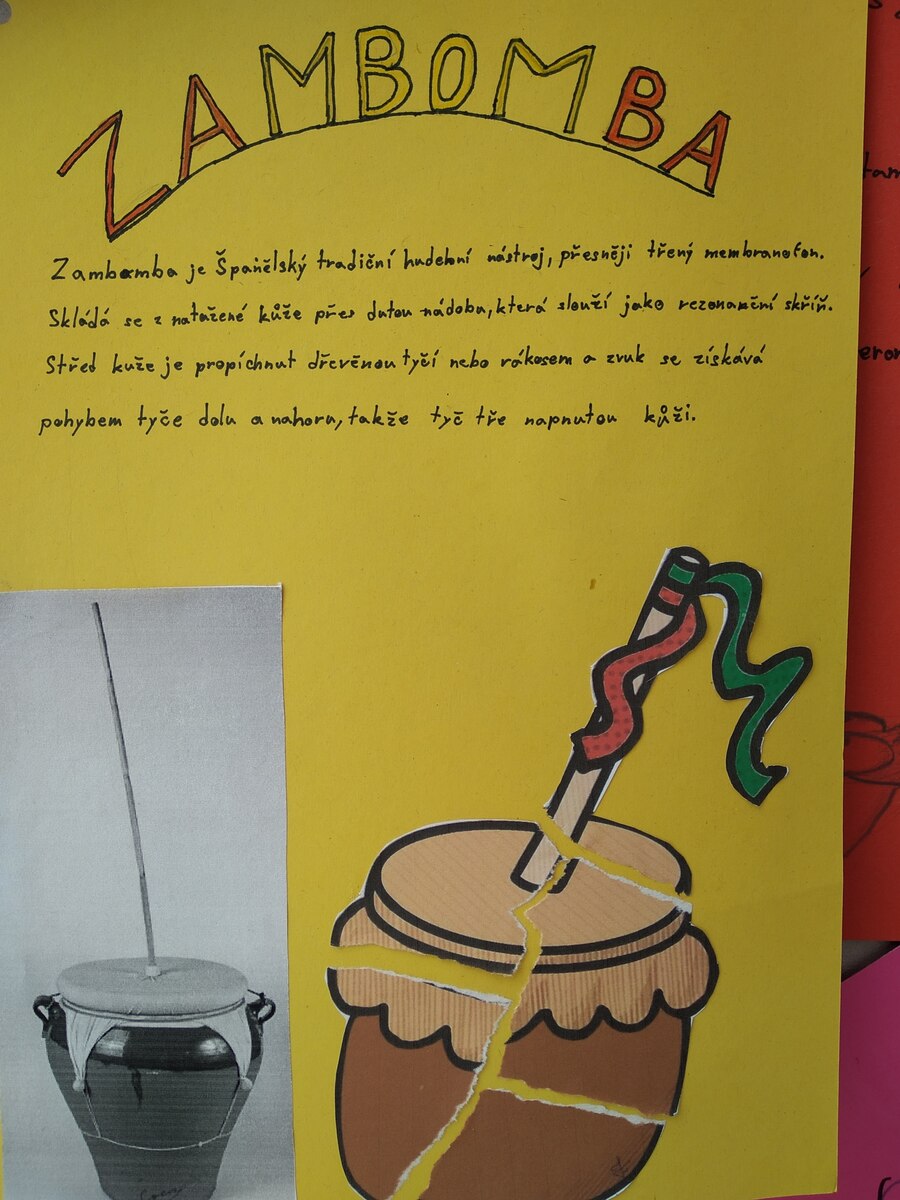 ZAMBOMBA
Zambomba je Španělský tradiční hudební nástroj, přesněji třený membranofon.
Skládá se z natažené kůže přes dutou nádobu, která slouží jako rezonanční skříň.
Střed kuže je propíchnut dřevěnou tyčí nebo rákosem a zvuk se získává
pohybem tyče dolu a nahoru, takže tyč tře napnutou kůži.